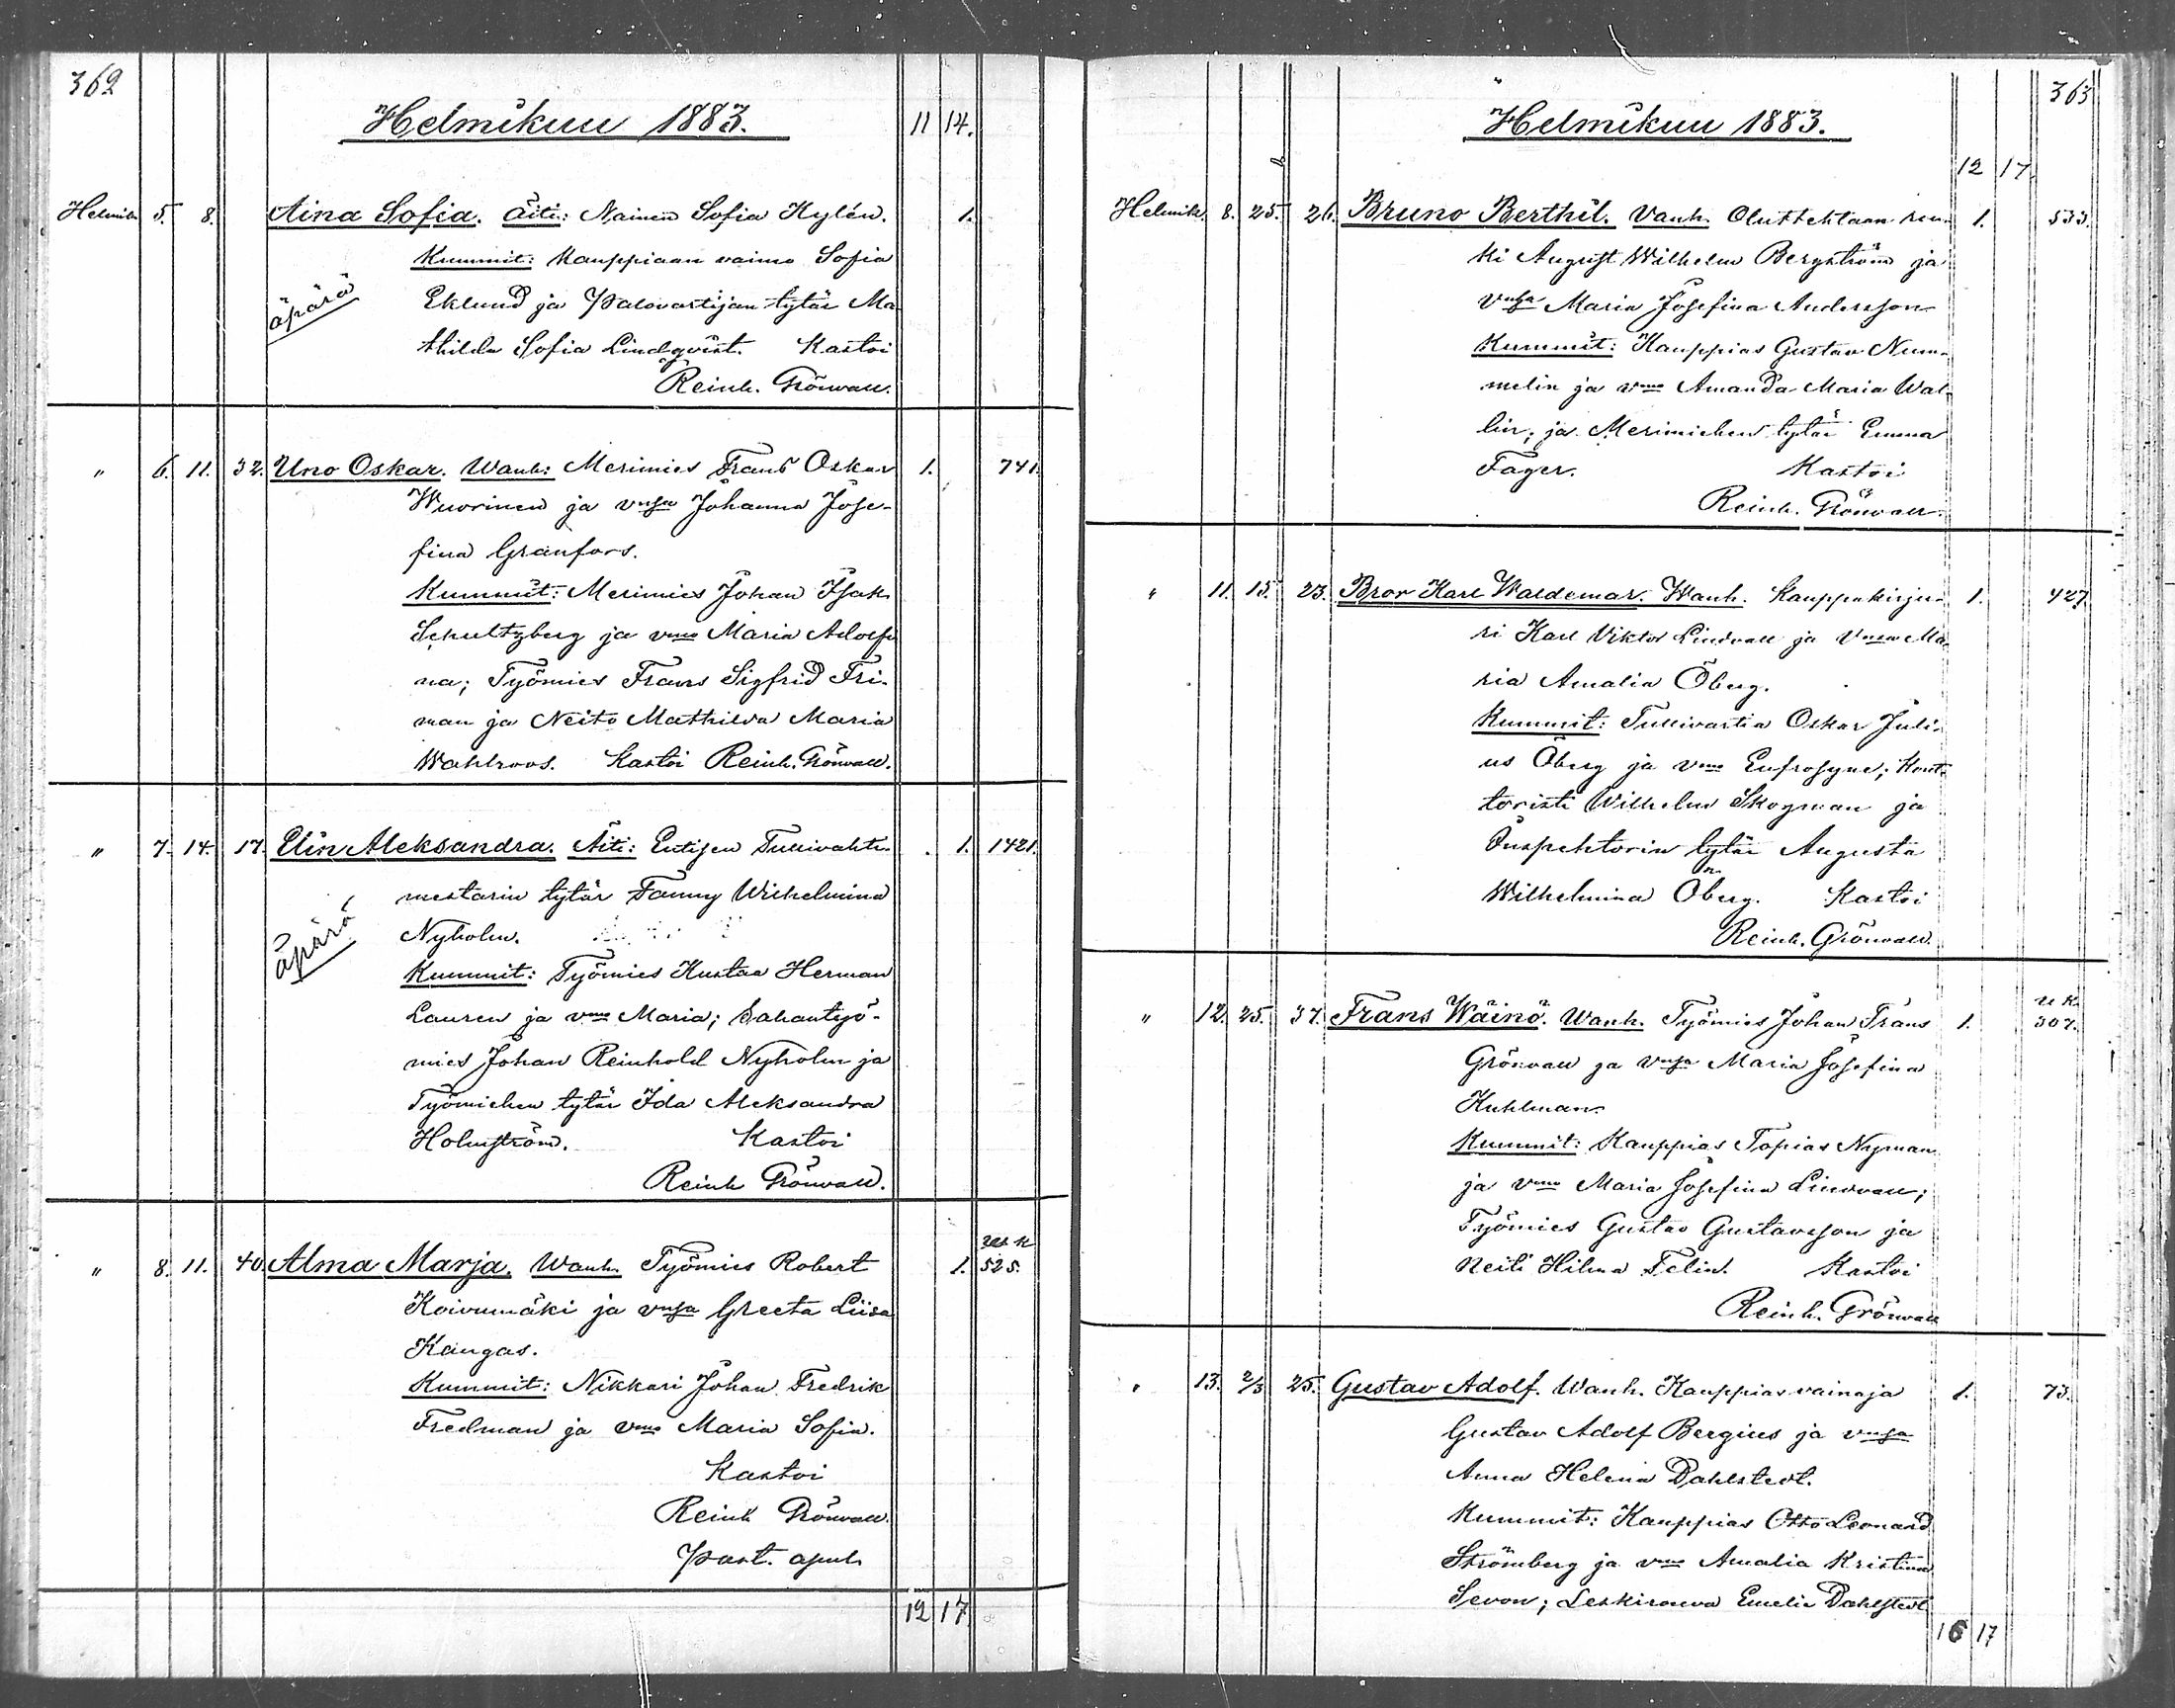 362
Helmikuu 1883. 11 14.
Helmik 5. 8. Aina Sofia. Äiti: Nainen Sofia Kylén. 1.
Kummit: Kauppiaan vaimo Sofia
äpärä Eklund ja Palovartijan tytär Ma
thilda Sofia Lindqvist. Kastoi
Reinh. Grönvall.
" 6. 11. 32. Uno Oskar. Wanh: Merimies Frans Oskar 1. 741.
Wuorinen ja vnsa Johanna Jose-
fina Granfors.
Kummit: Merimies Johan Isak
Schultzberg ja vmo Maria Adolfi
na; Työmies Frans Sigfrid Fri-
man ja Neito Mathilda Maria
Wahlroos. Kastoi Reinh. Grönvall.
" 7. 14. 17. Elin Aleksandra. Äiti: Entisen Tullivahti- 1. 1421.
mestarin tytär Fanny Wilhelmina
äpärä Nyholm.
Kummit: Työmies Kustaa Herman
Lauren ja vmo Maria; Sahantyö-
mies Johan Reinhold Nyholm ja
Työmiehen tytär Ida Aleksandra
Holmström. Kastoi
Reinh Grönvall.
" 8. 11. 40. Alma Marja. Wanh. Työmies Robert 1. 525.
Koivumäki ja vnsa Greeta Liisa
Kangas.
Kummit: Nikkari Johan Fredrik
Fredman ja vmo Maria Sofia.
Kastoi
Reinh Grönvall.
Past. apul.
12 17
363
Helmikuu 1883.
12 17.
Helmik. 8. 25. 26. Bruno Berthil. Vanh. Oluttehtaan ren- 1. 533.
ki August Wilhelm Bergström ja
vnsa Maria Josefina Andersson
Kummit: Kauppias Gustav Num-
melin ja vmo Amanda Maria Wal-
lin; ja Merimiehen tytär Emma
Fager. Kastoi
Reinh. Grönvall.
" 11. 15. 23. Bror Karl Waldemar. Wanh. Kauppakirju- 1. 427.
ri Karl Viktor Lindvall ja Vnsa Ma
ria Amalia Öberg.
Kummit: Tullivartia Oskar Juli-
us Öberg ja vmo Eufrosyne; Kont-
toristi Wilhelm Skogman ja
Inspehtorin tytär Augusta
Wilhelmina Öberg. Kastoi
Reinh. Grönvall.
" 12. 25. 37. Frans Wäinö. Wanh. Työmies Johan Frans 1. U K. 307.
Grönvall ja vnsa Maria Josefina
Kuhlman.
Kummit: Kauppias Topias Nyman
ja vmo Maria Josefina Lindvall;
Työmies Gustav Gustavsson ja
Neiti Hilma Felin. Kastoi
Reinh. Grönvall
" 13. 2/3 25. Gustav Adolf. Wanh. Kauppias vainaja 1. 73.
Gustav Adolf Bergius ja vnsa
Anna Helena Dahlstedt.
Kummit: Kauppias Otto Leonard
Strömberg ja vmo Amalia Kristina
Sevon; Leskirouva Emelie Dahlstedt
16 17